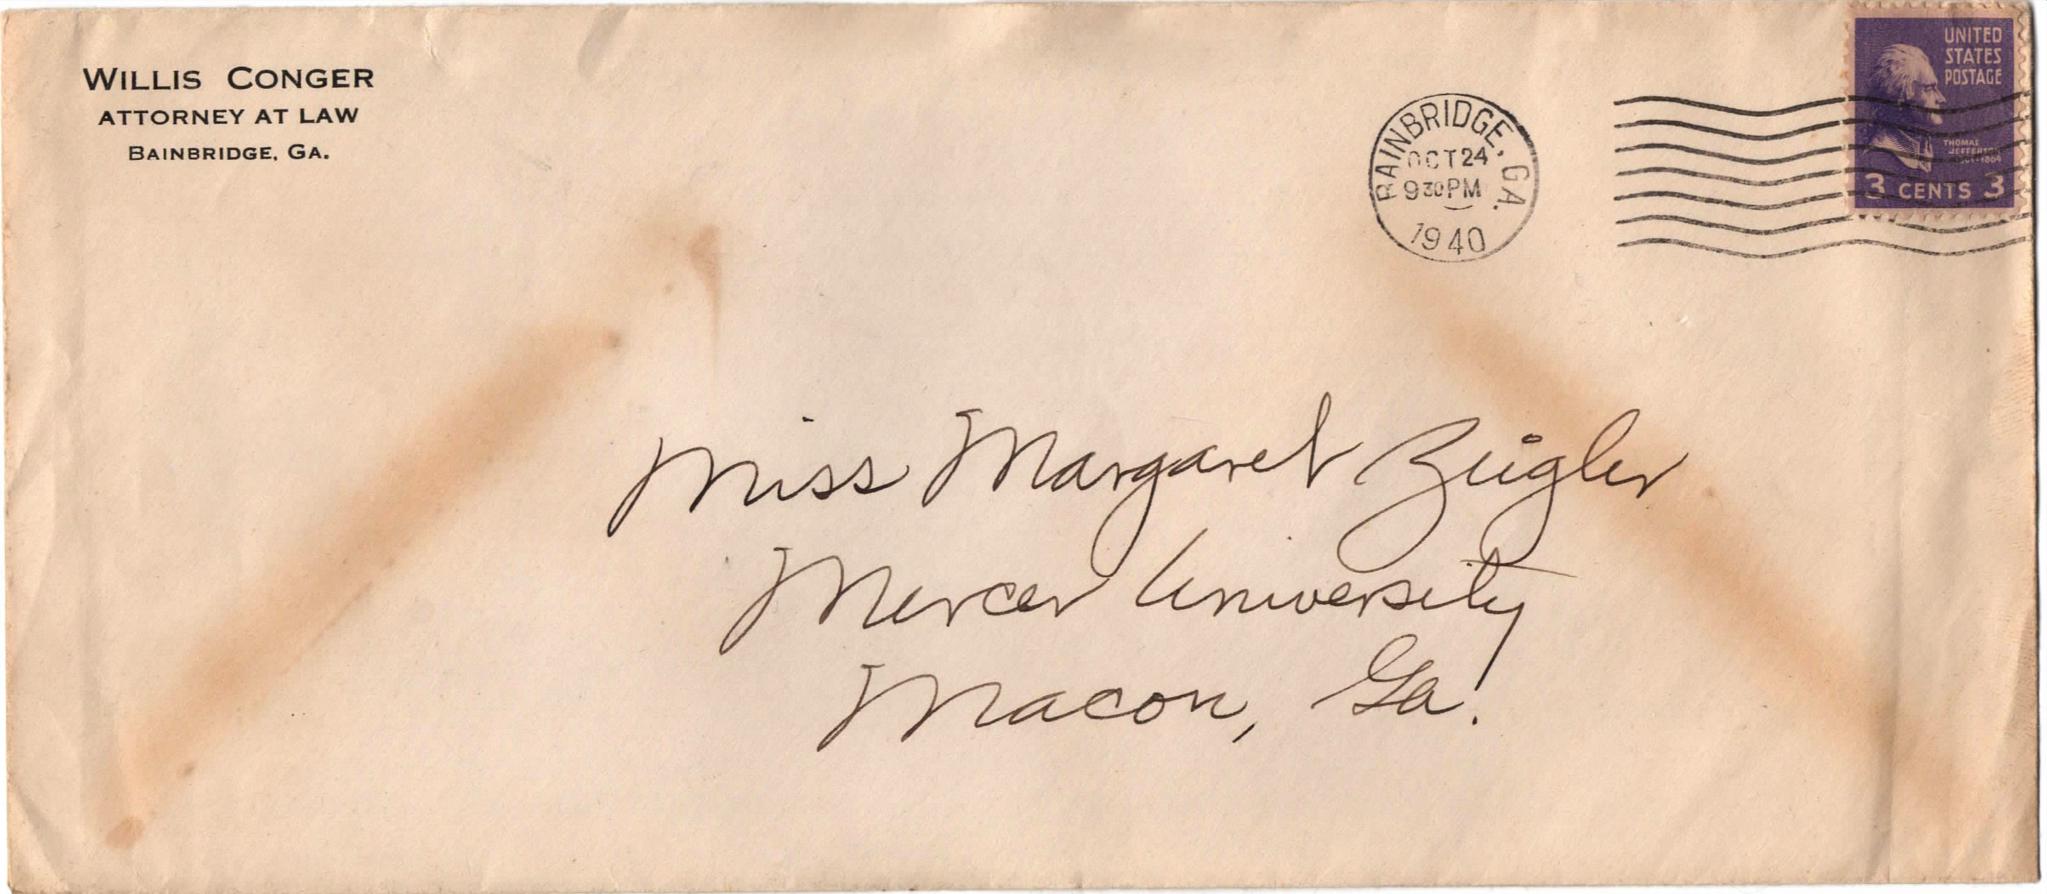 WILLIS CONGER
ATTORNEY AT LAW
BAINBRIDGE, GA.
BAINBRIDGE, GA.
OCT 24
9 30 PM
1940
UNITED
STATES
POSTAGE
THOMAS
JEFFERSON
3 CENTS 3
Miss Margaret Zeigler
Mercer University
Macon, Ga.